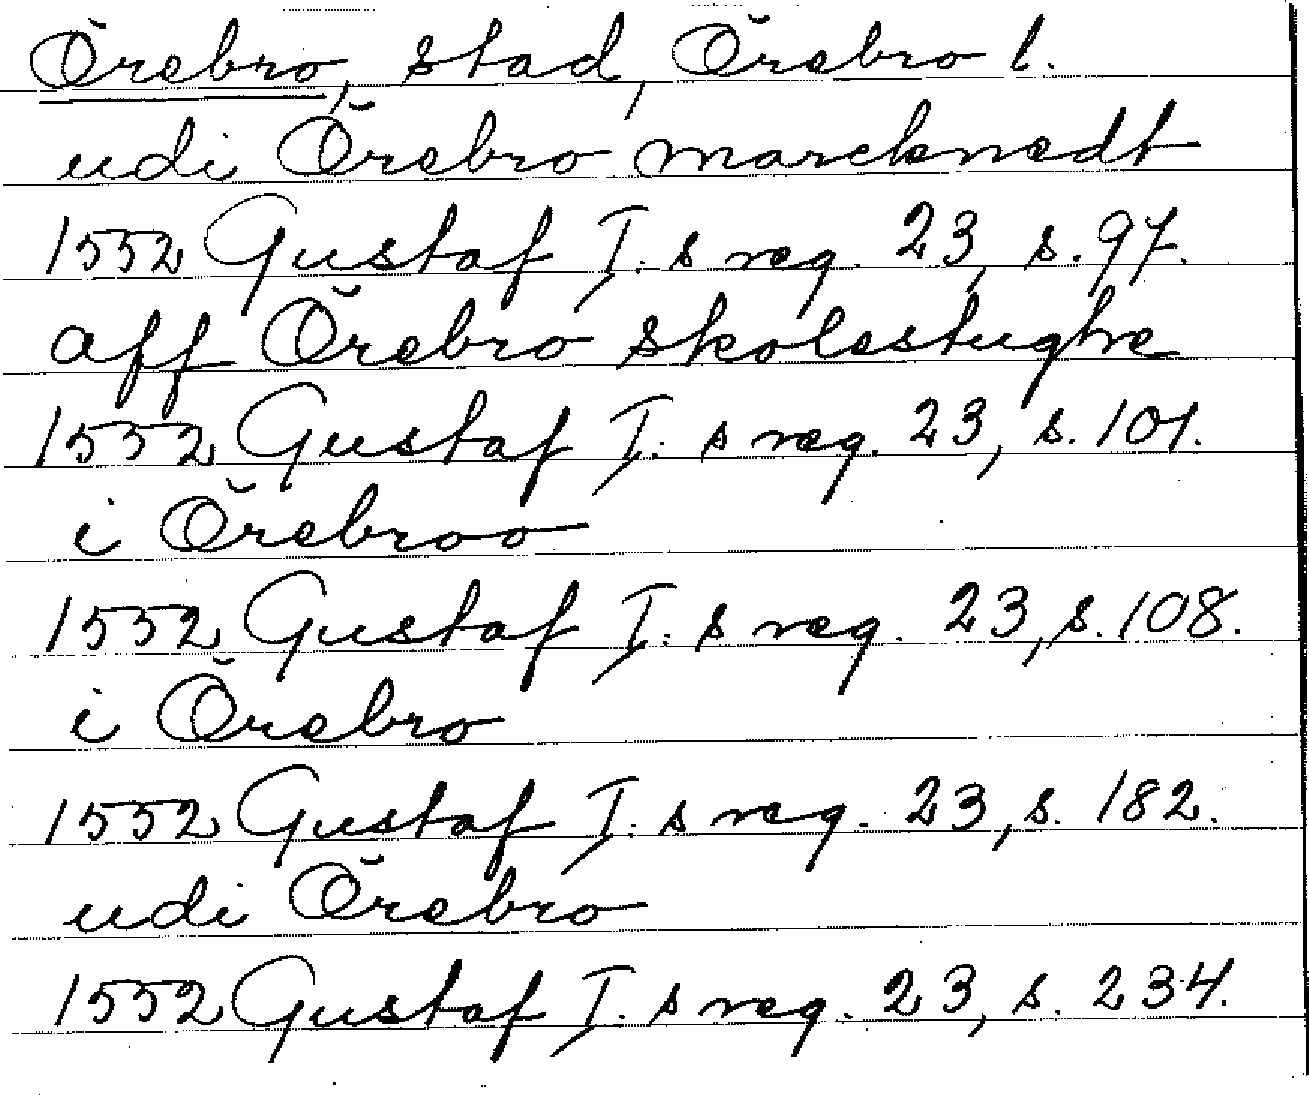 Örebro, stad, Örebro l.
udi Örebro marcknedt
1552 Gustaf I:s reg. 23, s. 97.
aff Örebro skolestughe
1552 Gustaf I:s reg. 23, s. 101.
i Örebroo
1552 Gustaf I:s reg. 23, s. 108.
i Örebro
1552 Gustaf I:s reg. 23, s. 182.
udi Örebro
1552 Gustaf I:s reg. 23, s. 234.